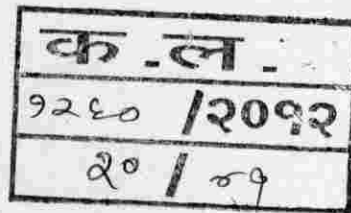 क.ल.
१२६० /२०१२
२० / ४१